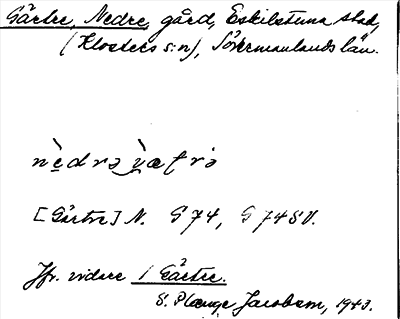 Gärtre, Nedre, gård, Eskilstuna stad,
(Klosters s:n), Södermanlands län.
nèdrə jæ̀trə
[Gärtre] N. G 74, G 74 S V.
Jfr. vidare 1 Gärtre.
S. Plænge Jacobson, 1943.